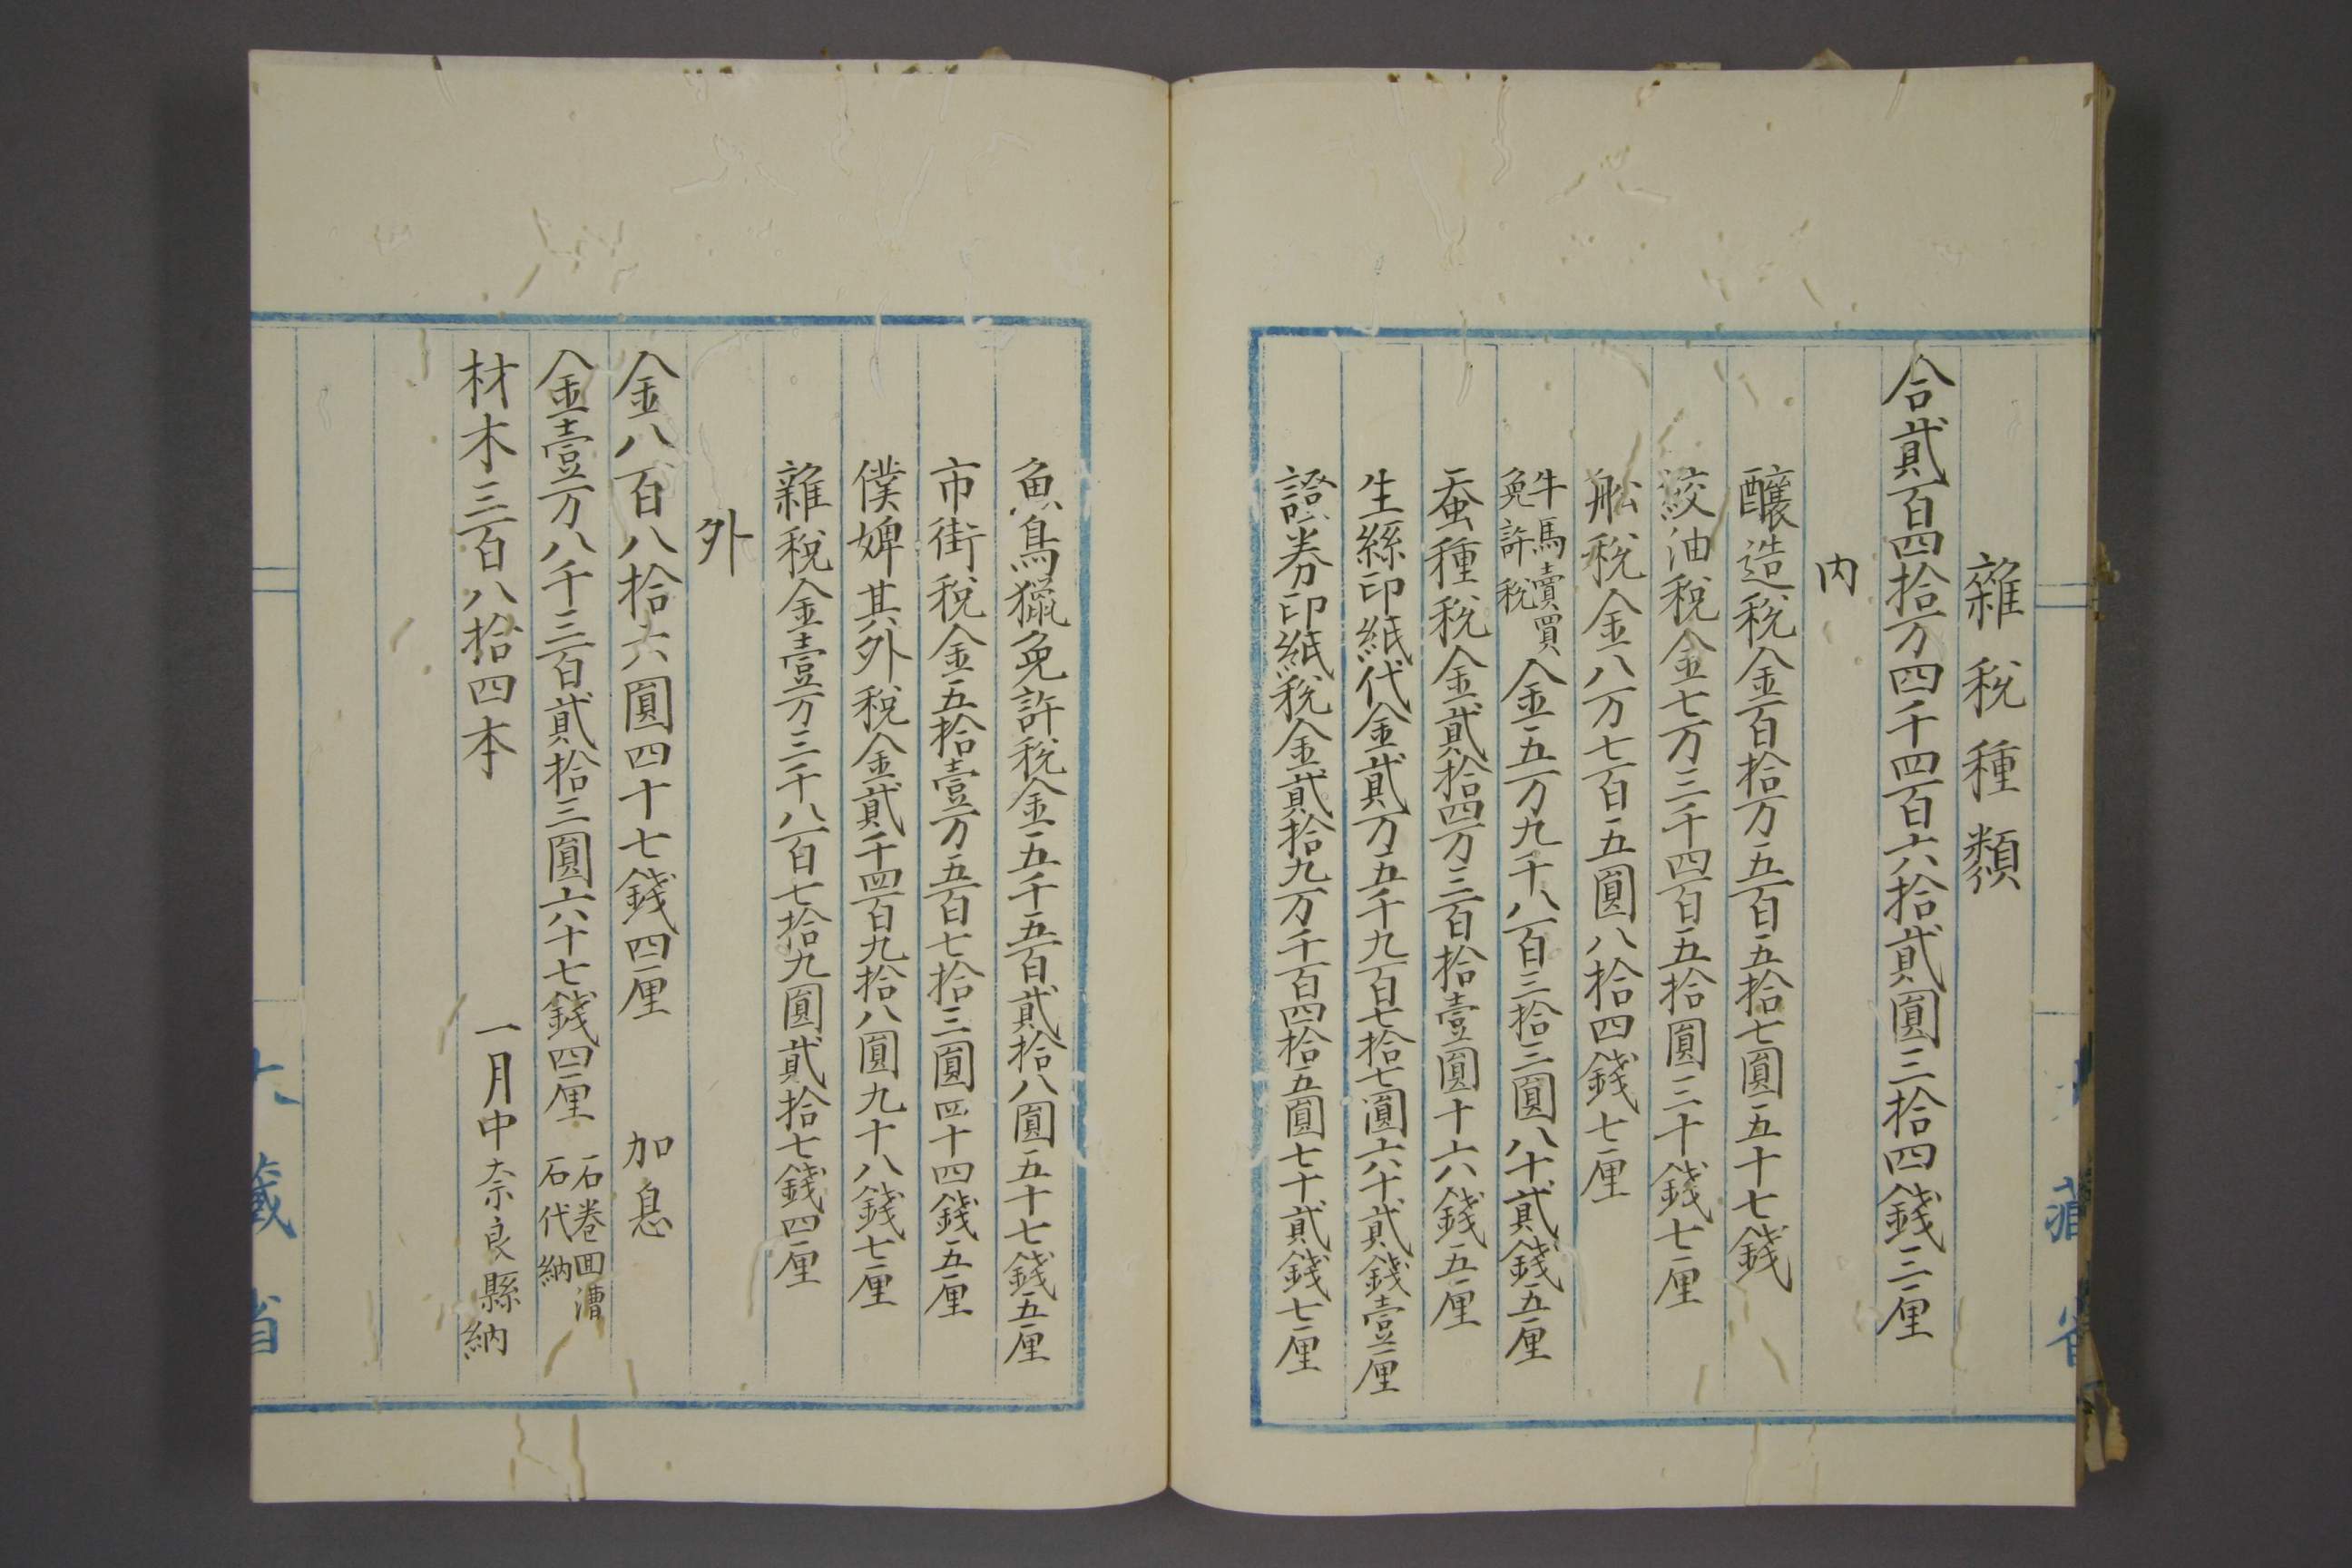 雜税種類
合貳百四拾万四千四百六拾貳圓三拾四錢三厘
内
釀造税金百拾万五百五拾七圓五十七錢
絞油税金七万三千四百五拾圓三十錢七厘
舩税金八万七百五圓八拾四錢七厘
牛馬賣買
免許税
金五万九千八百三拾三圓八十貳錢五厘
蚕種税金貳拾四万三百拾壹圓十六錢五厘
生絲印紙代金貳万五千九百七拾七圓六十貳錢壹厘
證券印紙税金貳拾九万千百四拾五圓七十貳錢七厘
藏省
魚鳥獵免許税金五千五百貳拾八圓五十七錢五厘
市街税金五拾壹万五百七拾三圓四十四錢五厘
僕婢其外税金貳千四百九拾八圓九十八錢七厘
雜税金壹万三千八百七拾九圓貳拾七錢四厘
外
金八百八拾六圓四十七錢四厘 加息
金壹万八千三百貳拾三圓六十七錢四厘
石巻囬漕
石代納
材木三百八拾四本 一月中奈良縣納
大藏省